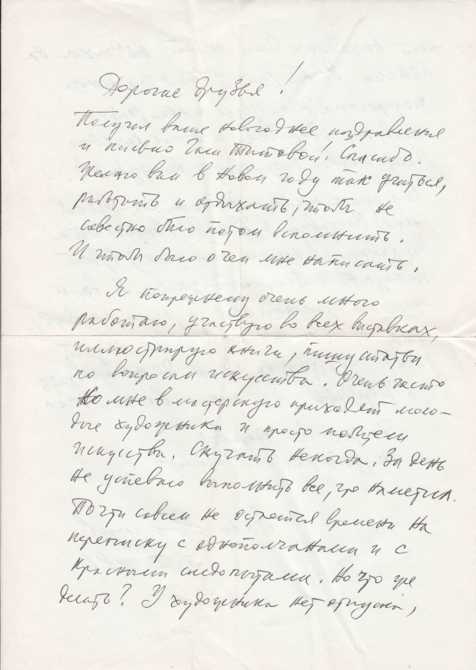 Дорогие друзья!
Получил ваше новогоднее поздравление
и письмо Гали Титовой! Спасибо.
Желаю вам в Новом году так учиться,
работать и отдыхать, чтобы не
совестно было потом вспомнить.
И чтоб было о чем мне написать.
Я попрежнему очень много
работаю, участвую во всех выставках,
иллюстрирую книги, пишу статьи
по вопросам искусства. Очень часто
ко мне в мастерскую приходят моло-
дые художники и просто любители
искусства. Скучать некогда. За день
не успеваю выполнить все, что наметил.
Почти совсем не остается времени на
переписку с однополчанами и с
красными следопытами. Но что же
делать? У художника нет отпуска,